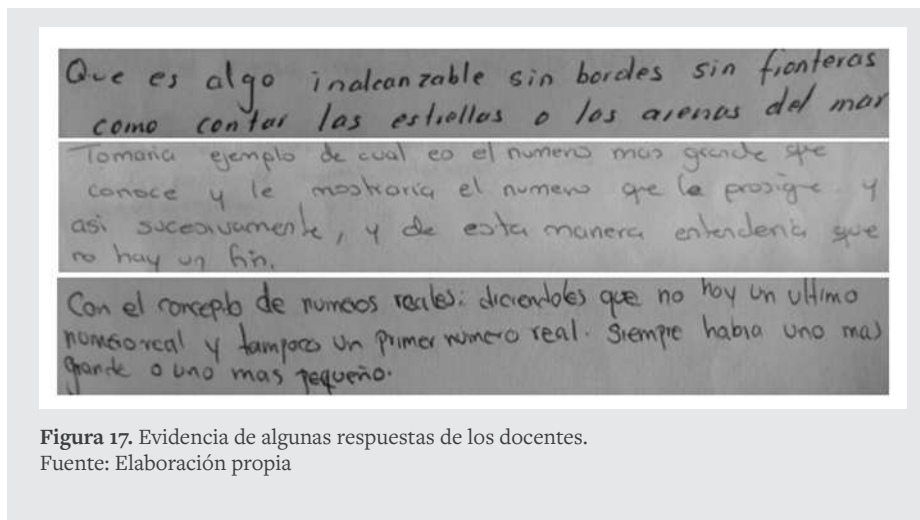 Que es algo inalcanzable sin bordes sin fronteras
como contar las estrellas o las arenas del mar
Tomaria ejemplo de cual es el numero mas grande que
conoce y le mostraria el numero que le prosigue y
asi sucesivamente, y de esta manera entenderia que
no hay un fin.
Con el concepto de numeros reales: diciendoles que no hay un ultimo
numero real y tampoco un primer numero real. Siempre habra uno mas
grande o uno mas pequeño.
Figura 17. Evidencia de algunas respuestas de los docentes.
Fuente: Elaboración propia